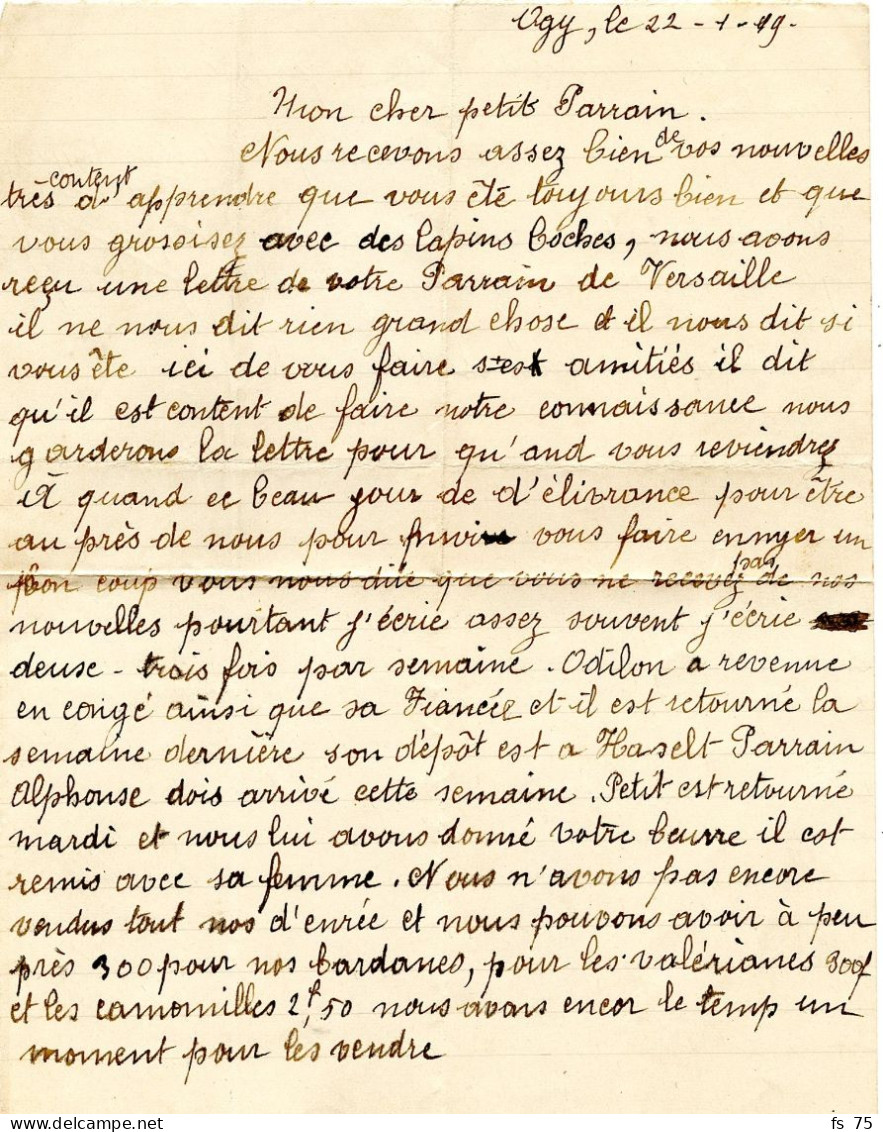 Ogy, le 22 - 1 - 19.
Mon cher petit Parrain.
Nous recevons assez bien de vos nouvelles
très content d'apprendre que vous été toujours bien et que
vous grossisez avec des lapins boches, nous avons
reçu une lettre de votre Parrain de Versaille
il ne nous dit rien grand chose et il nous dit si
vous ête ici de vous faire ses amitiés il dit
qu'il est content de faire notre connaissance nous
garderons la lettre pour qu'and vous reviendrez
A quand ce beau jour de d'élivrance pour être
au près de nous pour vous faire ennyer un
bon coup vous nous dite que vous ne recevez pas de nos
nouvelles pourtant j'écrie assez souvent j'écrie
deuse - trois fois par semaine. Odilon a revenue
en congé ainsi que sa Fiancée et il est retourné la
semaine dernière son dépôt est a Haselt Parrain
Alphonse dois arrivé cette semaine. Petit est retourné
mardi et nous lui avons donné votre beurre il est
remis avec sa femme. Nous n'avons pas encore
vendus tout nos d'enrée et nous pouvons avoir à peu
près 300 pour nos bardanes, pour les valérianes 300f
et les camomilles 2f,50 nous avons encor le temp un
moment pour les vendre
fs 75